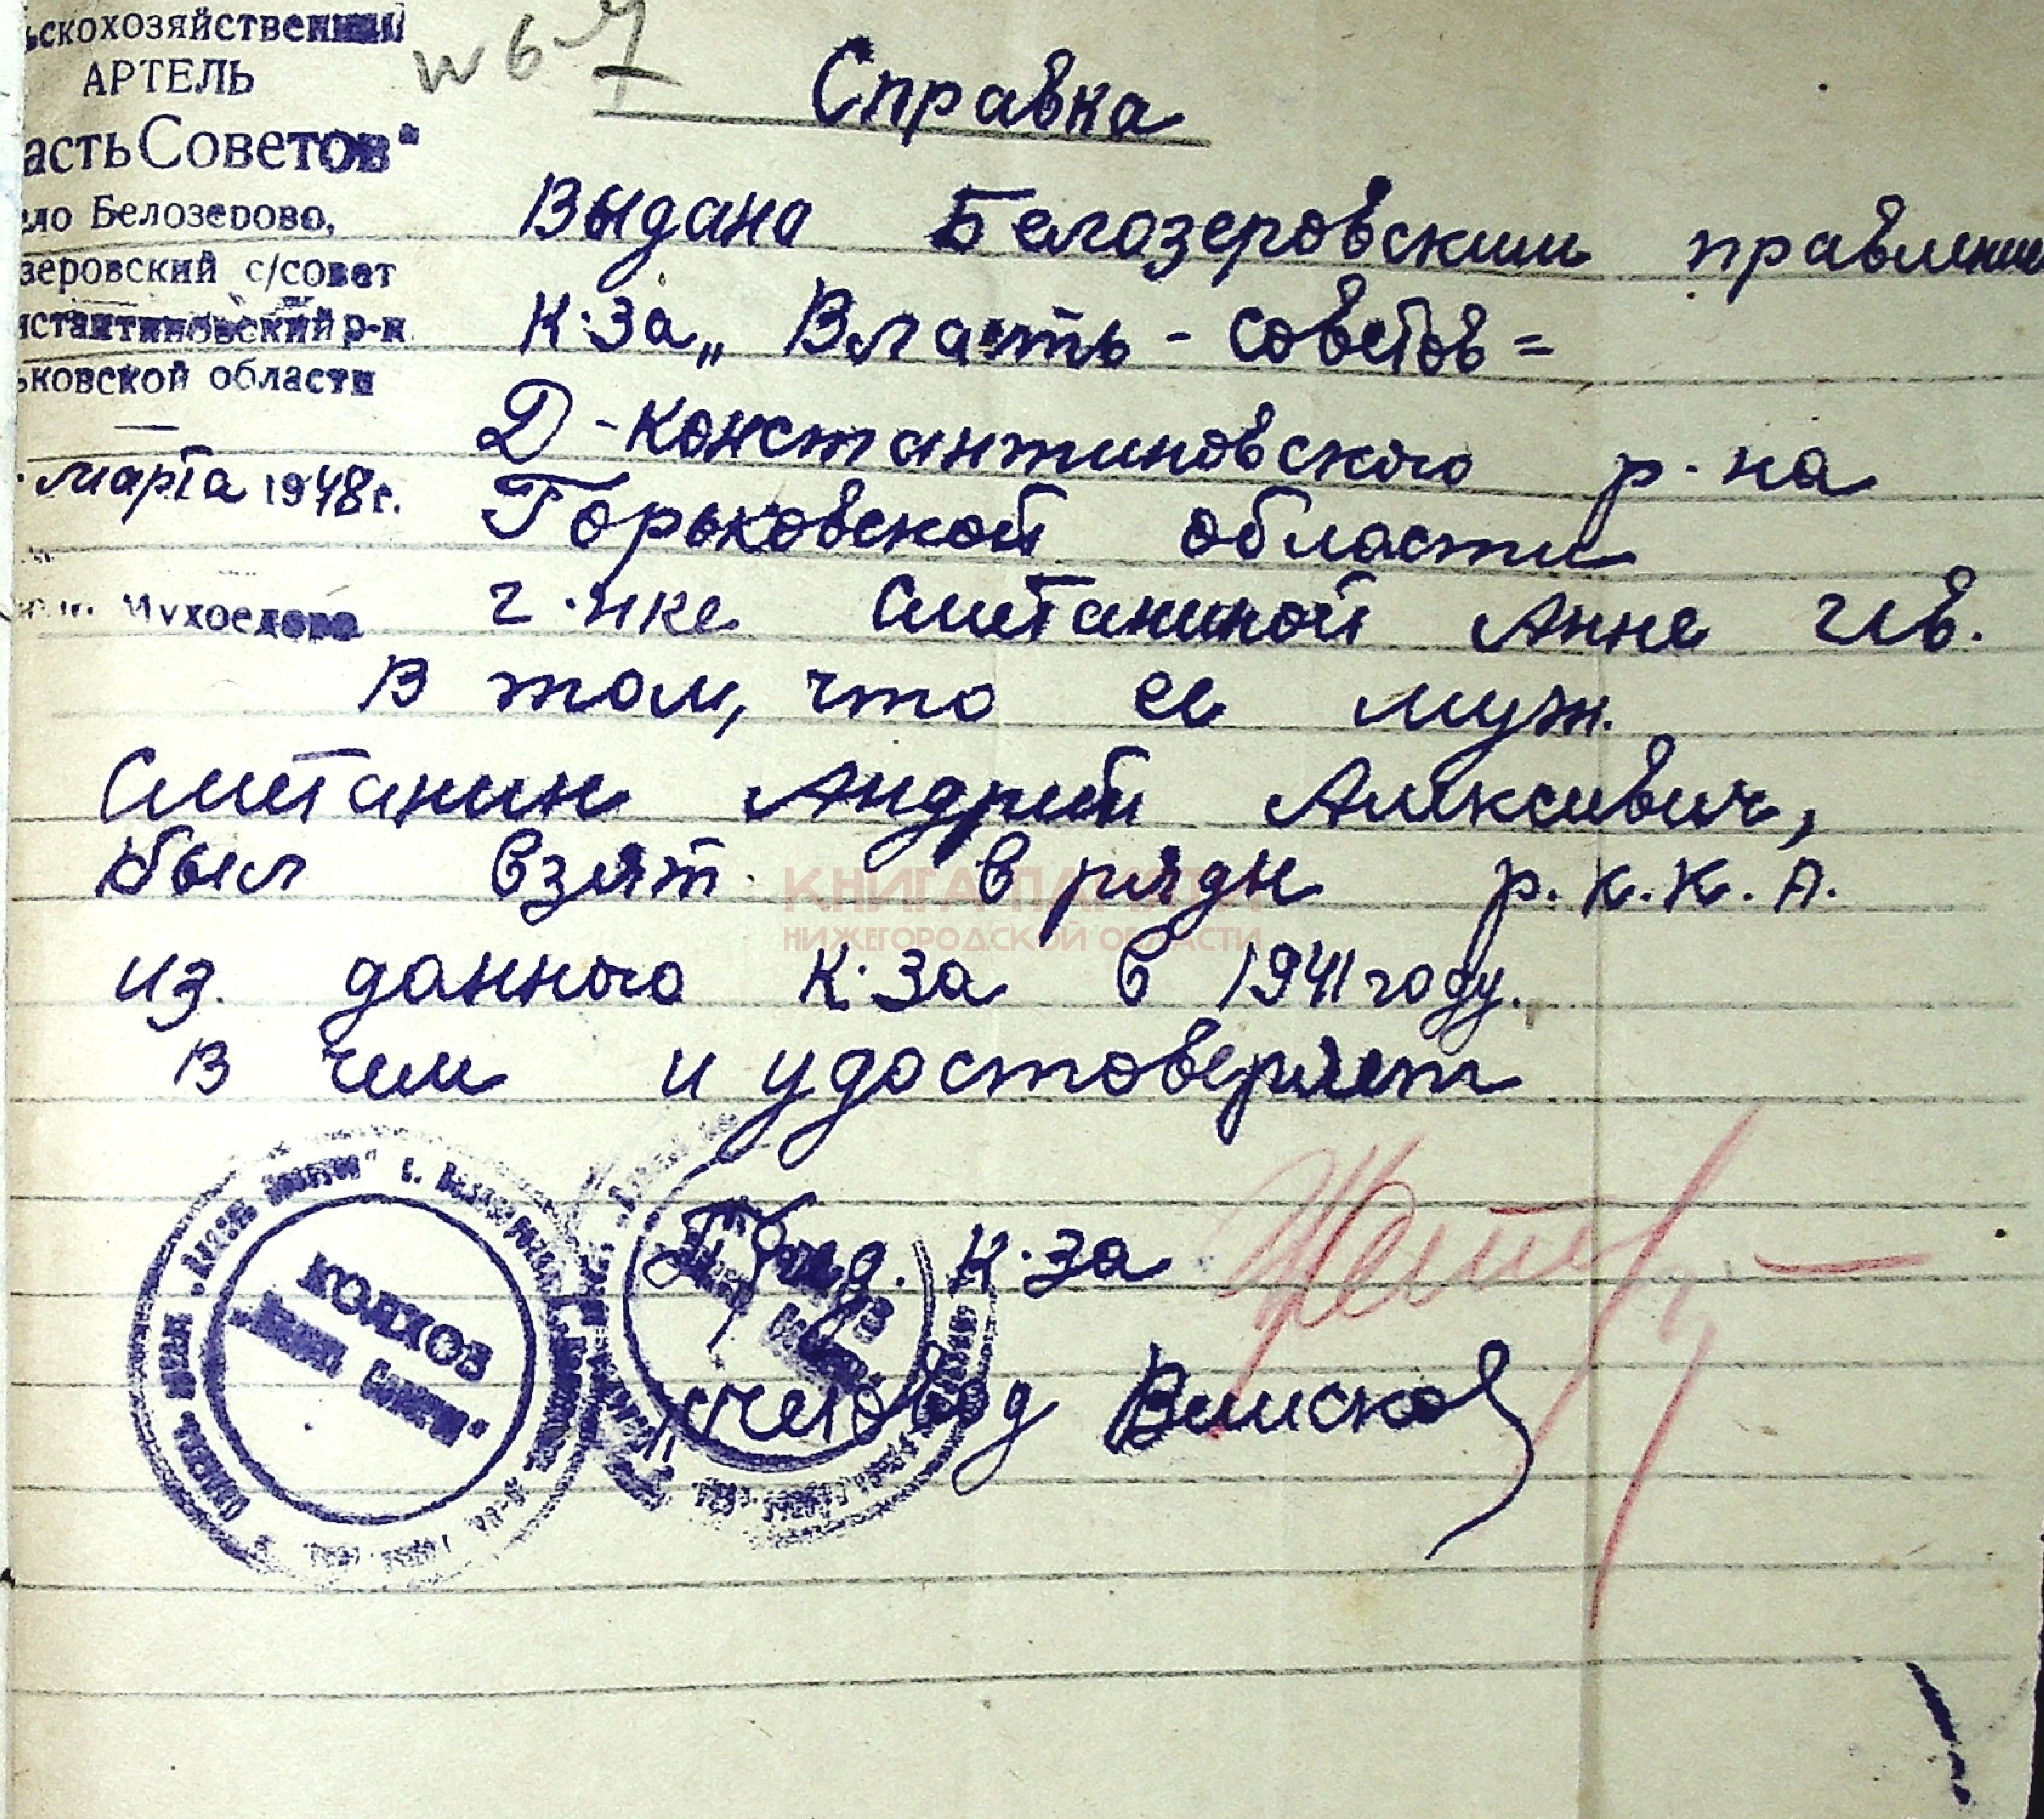 ьскохозяйственный
АРТЕЛЬ
асть Советов"
ело Белозерово,
зеровский с/совет
нстантиновский р-н
ьковской области
марта 1948 г.
Мухоедово
№ 67
Справка
Выдана Белозеровским правлением
к-за „ Власть - советов =
Д-Константиновского р-на
Горьковской области
г-нке Сметаниной Анне Ив.
В том, что ее муж.
Сметанин Андрей Алексеевич,
был взят в ряды р.К.К.А.
из данного к-за в 1941 году.
В чем и удостоверяет
Пред. к-за
счетовод
КОЛХОЗ
„Власть Советов"
КНИГА ПАМЯТИ
НИЖЕГОРОДСКОЙ ОБЛАСТИ